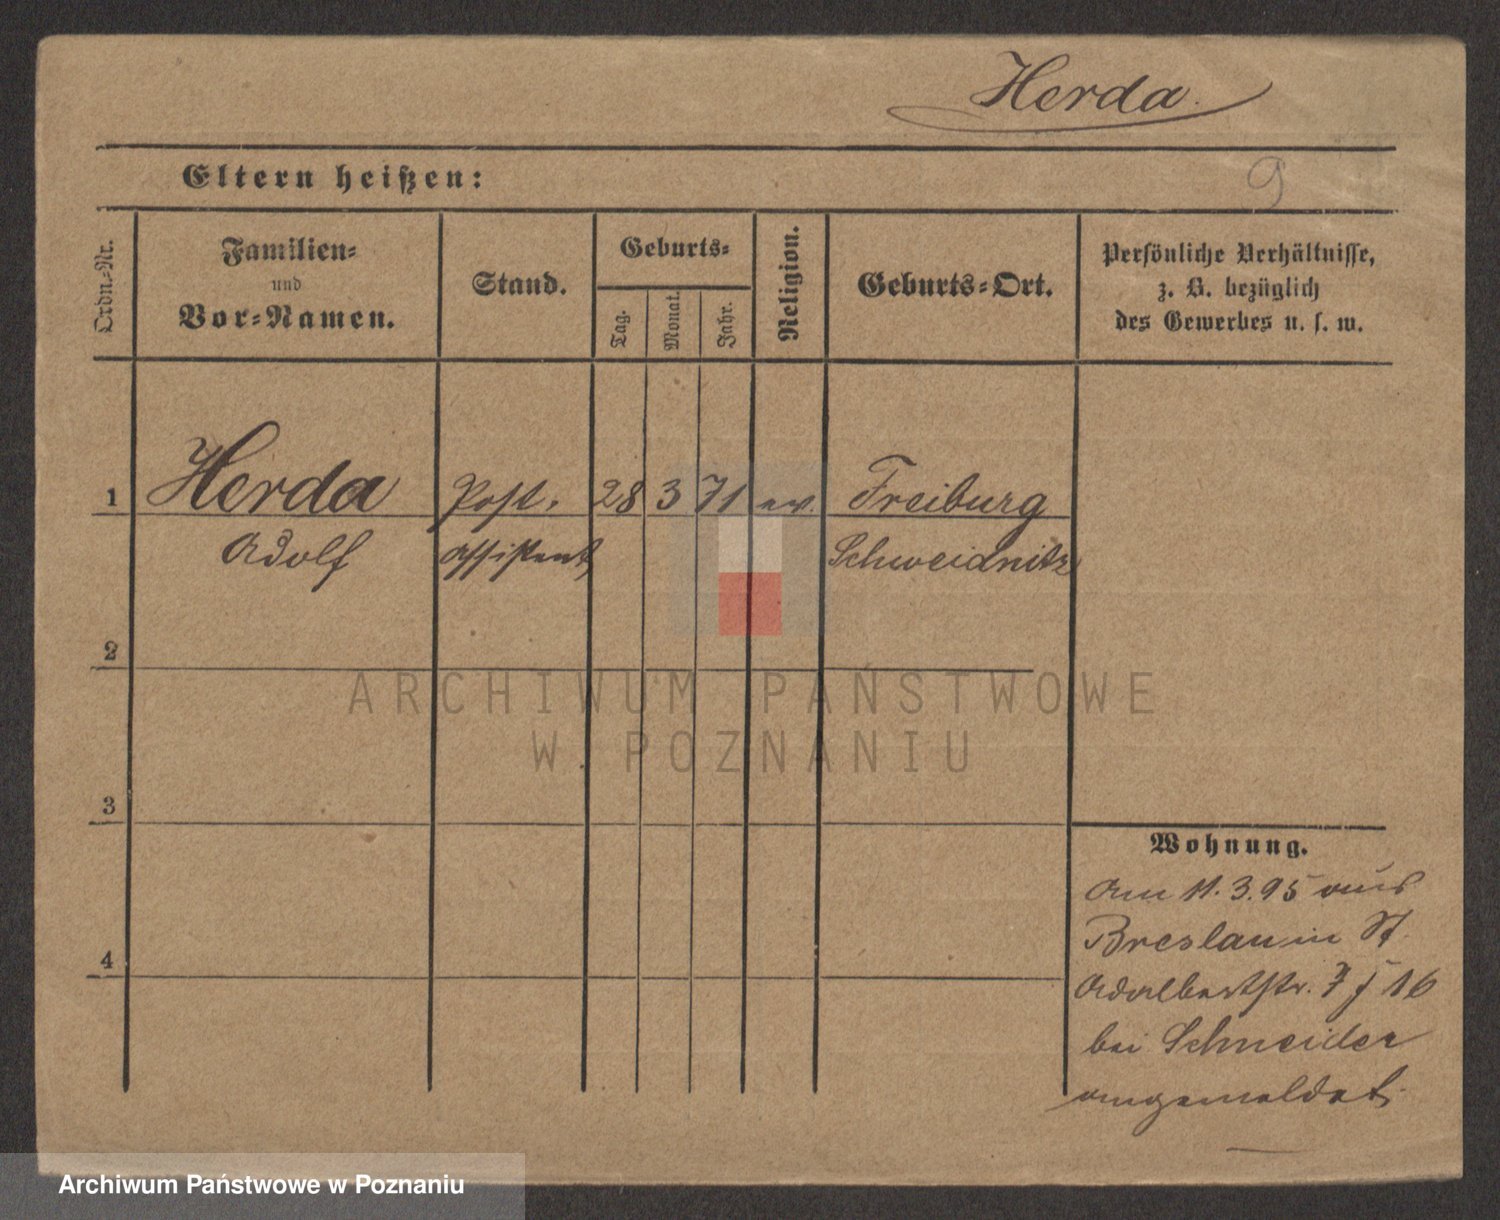 Herda.
9
Eltern heißen:
Ordn.-Nr.
Familien-
und
Vor-Namen.
Stand.
Geburts-
Tag.
Monat.
Jahr.
Religion.
Geburts-Ort.
Persönliche Verhältnisse,
z. B. bezüglich
des Gewerbes u. s. w.
1 Herda Post. 28 3 71 ev. Freiburg
Adolf Assistent Schweidnitz
2
3
4
Wohnung.
Am 11.3.95 aus
Breslau in St
Adalbertstr. 7 16
bei Schneider
angemeldet.
ARCHIWUM PAŃSTWOWE
W POZNANIU
Archiwum Państwowe w Poznaniu